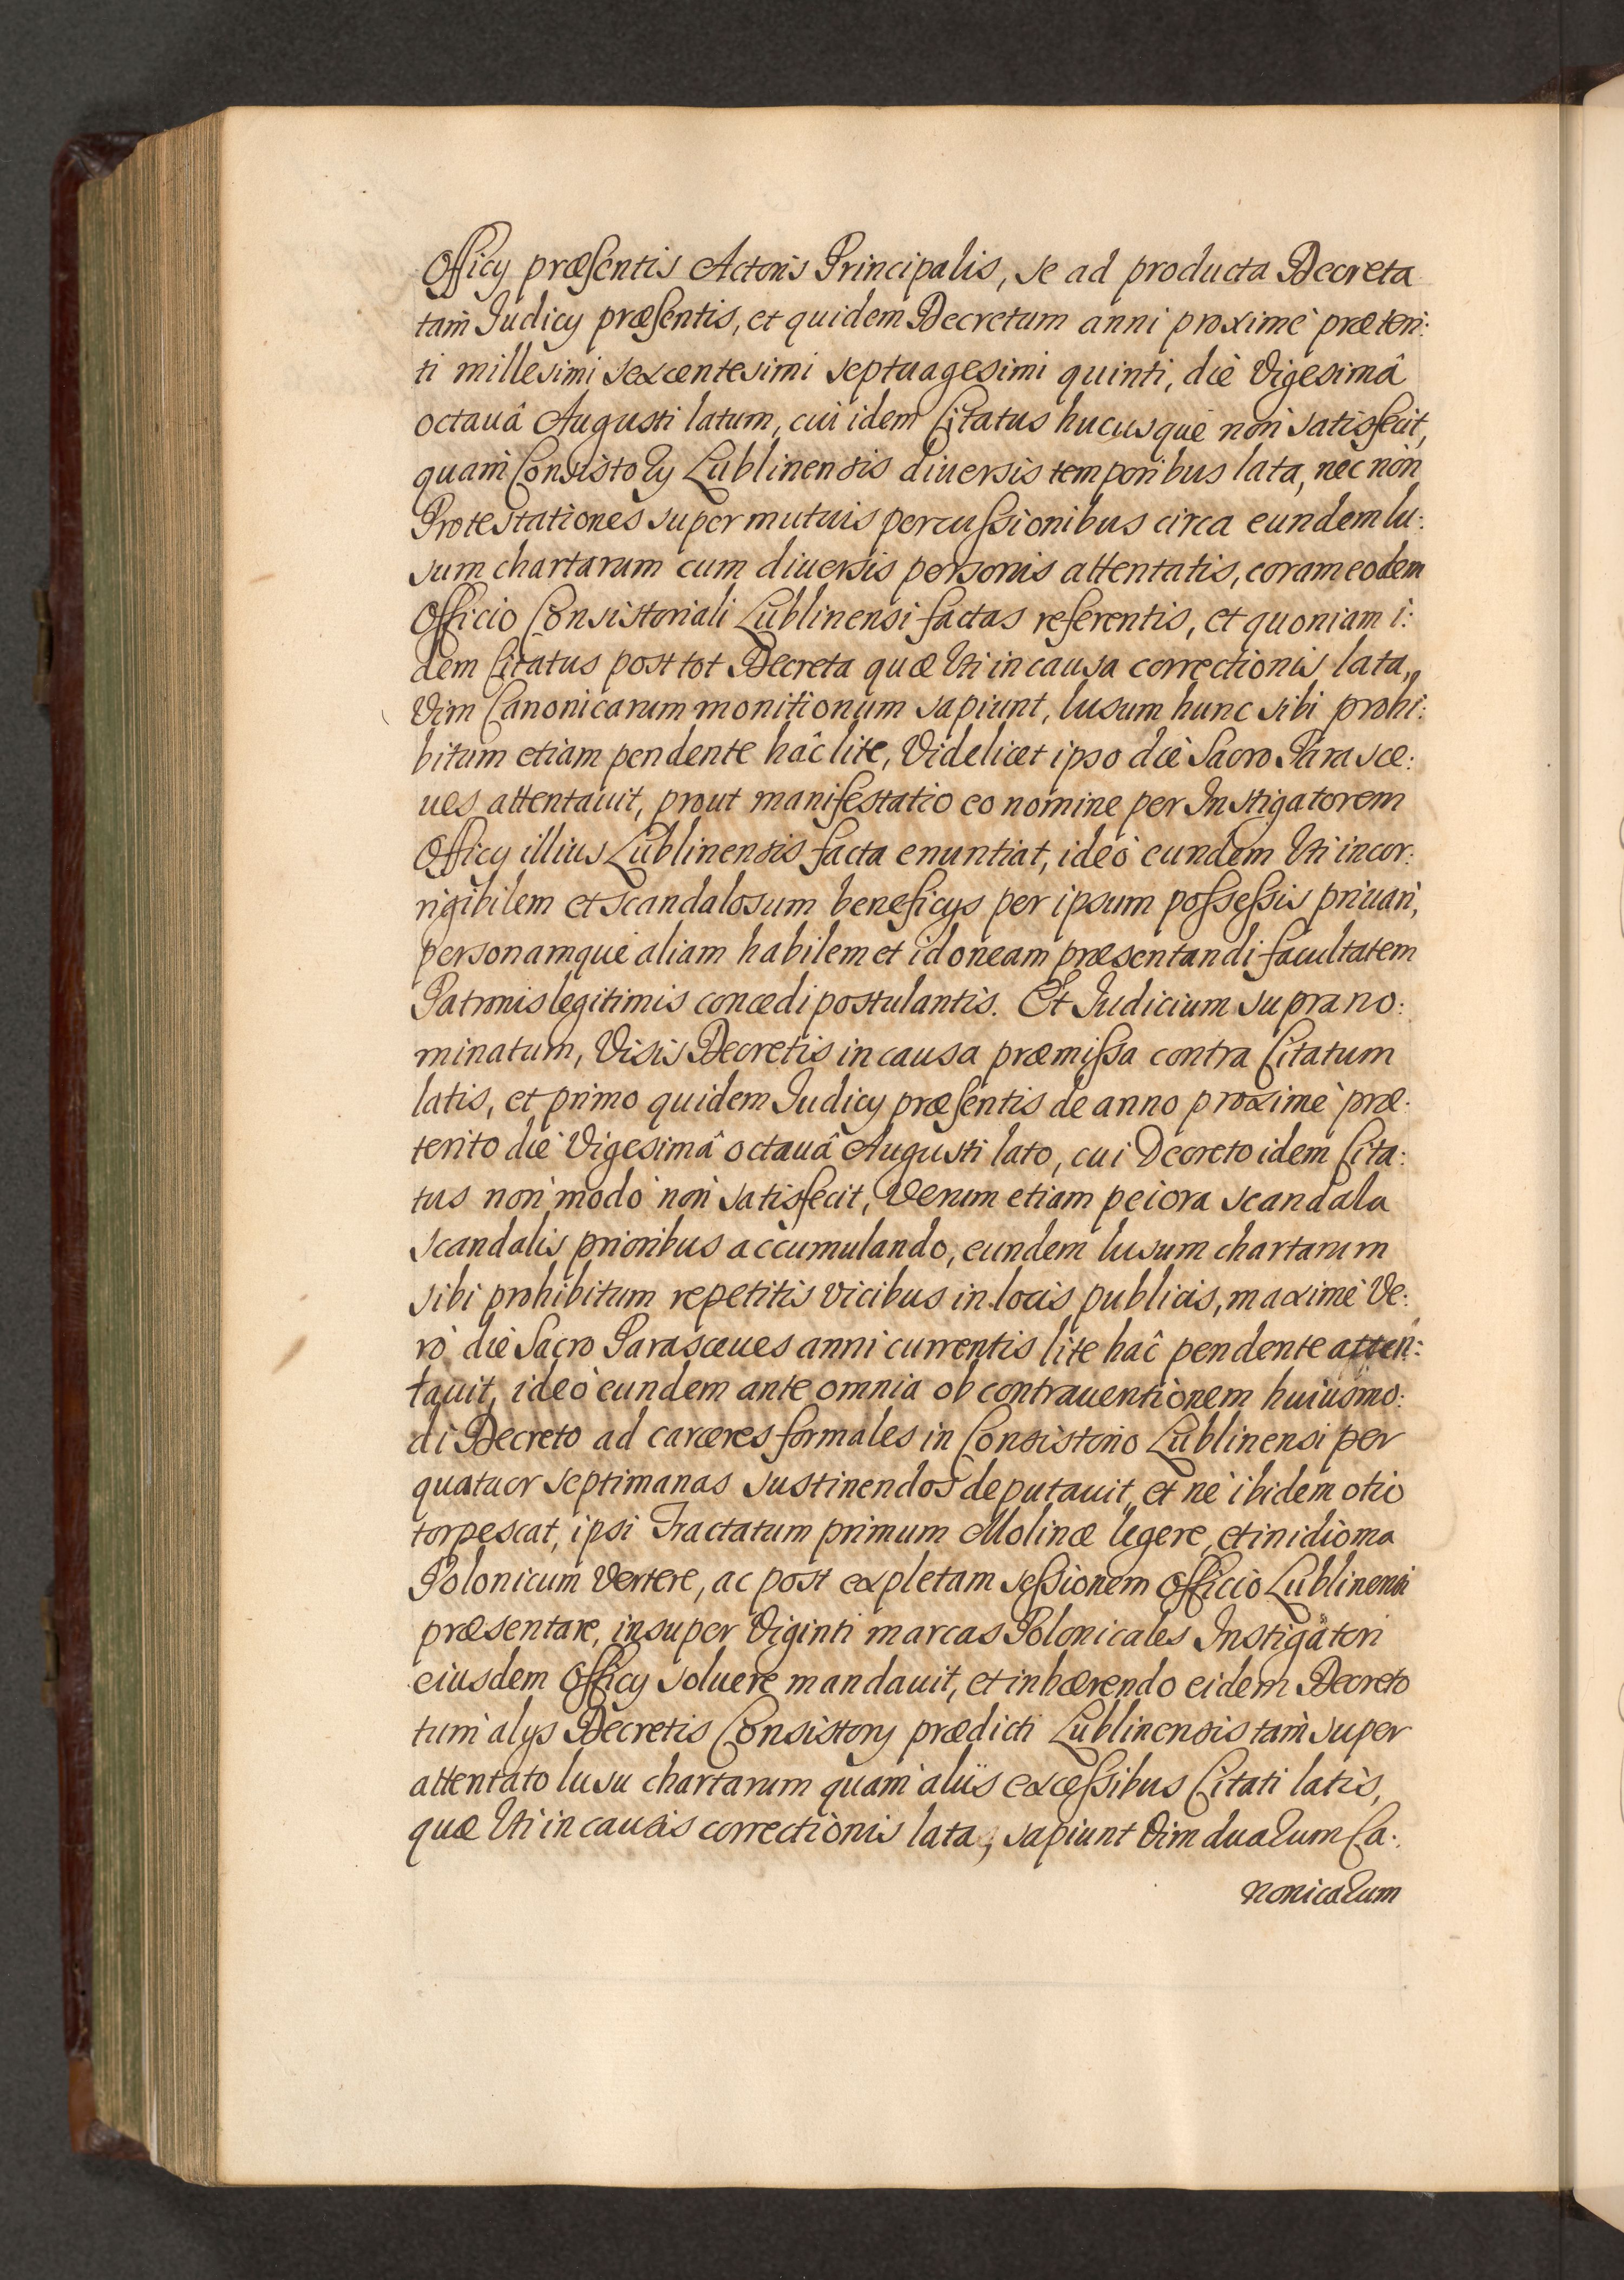 Officij præsentis Actoris Principalis, se ad producta Decreta
tam̀ Iudicij præsentis, et quidem Decretum anni proximè præteri:
ti millesimi sexcentesimi septuagesimi quinti, diè Vigesimâ
octauâ Augusti latum, cui idem Citatus hucusquè non̄ satisfecit,
quam̀ Consistorij Lublinensis diuersis temporibus lata, nec non̄
Protestationes super mutuis percussionibus circa eundem lu:
sum chartarum cum diuersis personis attentatis, coram eodem
Officio Consistoriali Lublinensi factas referentis, et quoniam i:
dem Citatus post tot Decreta quæ Vti in causa correctionis lata,
Vim Canonicarum monitionum sapiunt, lusum hunc sibi prohi:
bitum etiam pendente hâc lite, Videlicet ipso diè Sacro Parasce:
ues attentauit, prout manifestatio eo nomine per Instigatorem
Officij illius Lublinensis facta enuntiat, ideò eundem Vti incor:
rigibilem et scandalosum beneficijs per ipsum possessis priuari,
personamquè aliam habilem et idoneam præsentandi facultatem
Patronis legitimis concedi postulantis. Et Iudicium suprano:
minatum, Visis Decretis in causa præmissa contra Citatum
latis, et primo quidem Iudicij præsentis de anno proximè præ:
terito diè Vigesimâ octauâ Augusti lato, cui Decreto idem Cita:
tus non̄ modò non̄ satisfecit, Verum etiam peiora scandala
scandalis prioribus accumulando, eundem lusum chartarum
sibi prohibitum repetitis vicibus in locis publicis, maximè Ve:
rò diè Sacro Parasceues anni currentis lite hâc pendente atten:
tauit, ideò eundem ante omnia ob contrauentionem huiusmo:
di Decreto ad carceres formales in Consistorio Lublinensi per
quatuor septimanas sustinendos deputauit, et nè ibidem otio
torpescat, ipsi Tractatum primum Molinæ legere, et in idioma
Polonicum Vertere, ac post expletam sessionem Officio Lublinensi
præsentare, insuper Viginti marcas Polonicales Instigatori
eiusdem Officij soluere mandauit, et inhærendo eidem Decreto
tum̀ alijs Decretis Consistorij prædicti Lublinensis tam̀ super
attentato lusu chartarum quam̀ aliis excessibus Citati latis,
quæ Vti in causis correctionis lata, sapiunt Vim duarum Ca:
nonicarum